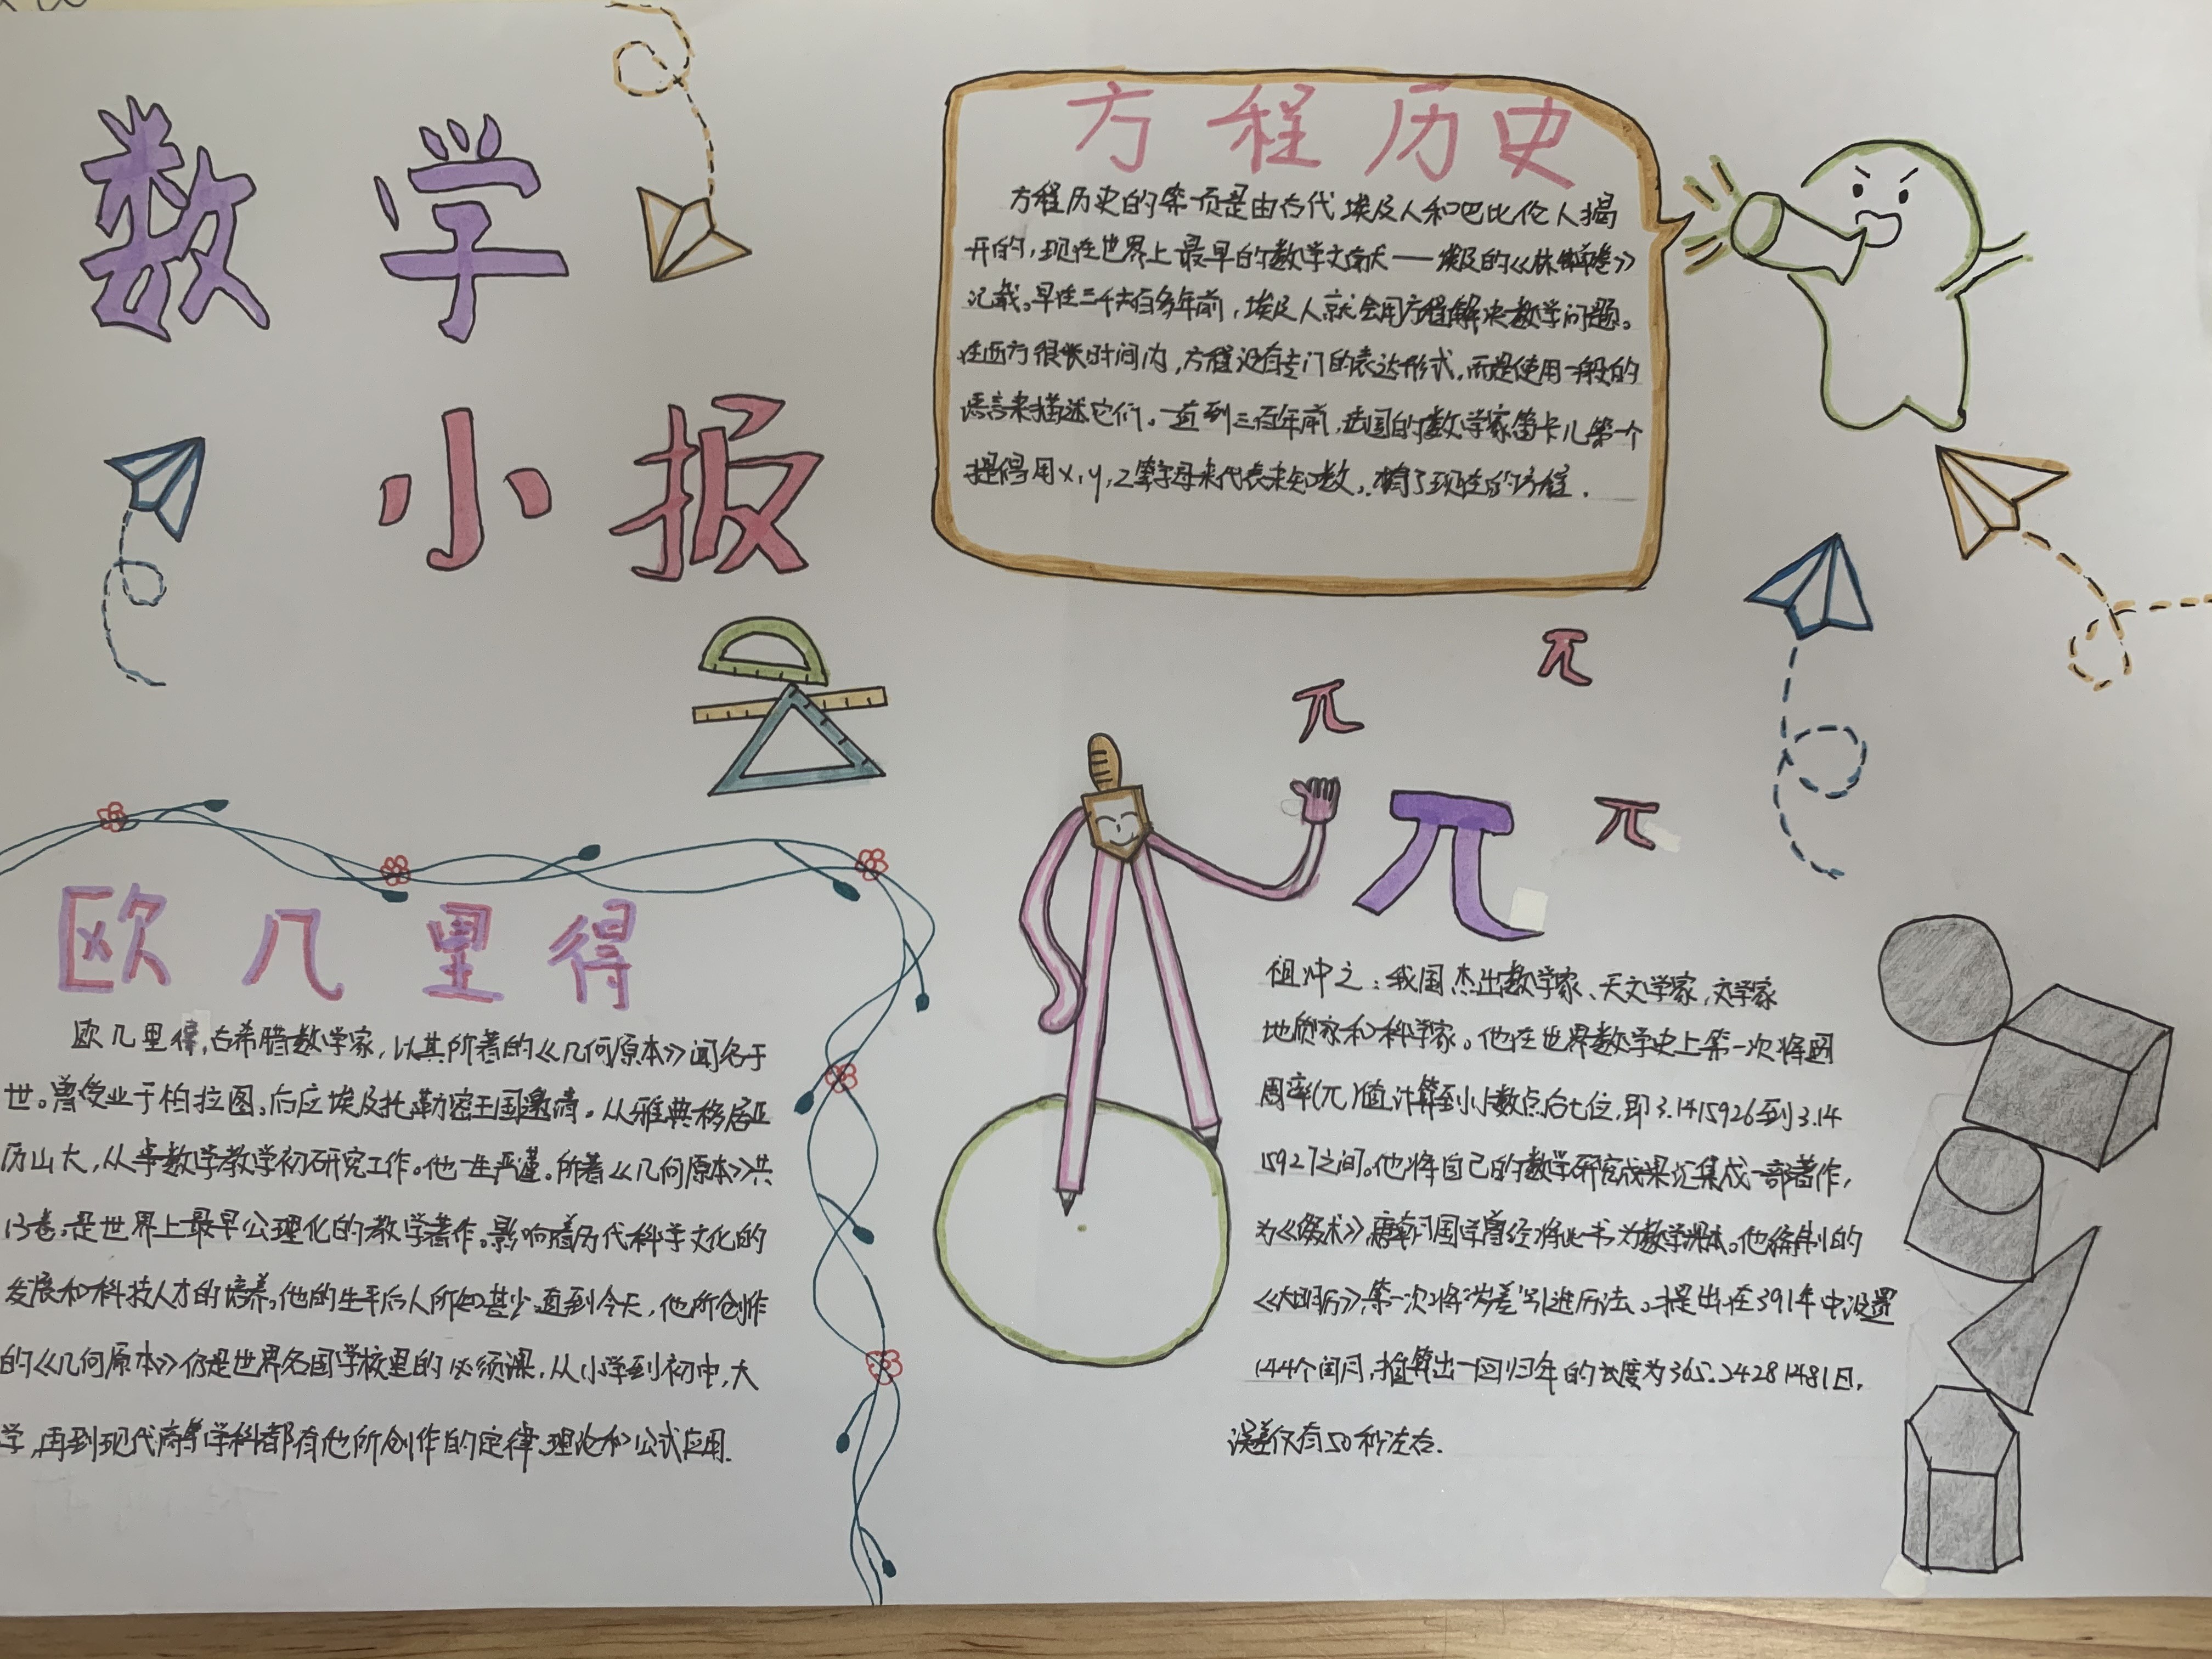 数学
小报
方程历史
方程历史的第一页是由古代埃及人和巴比伦人揭
开的,现在世界上最早的数学文献——埃及的《林德草卷》
记载。早在三千六百多年前,埃及人就会用方程解决数学问题。
在西方很长时间内,方程没有专门的表达形式,而是使用一般的
语言来描述它们。一直到三百年前,法国的数学家笛卡儿第一个
提倡用x,y,z等字母来代表未知数,才有了现在的方程.
π
π
π
π
欧几里得
欧几里得,古希腊数学家,以其所著的《几何原本》闻名于
世。曾受业于柏拉图,后应埃及托勒密王国邀请。从雅典移居亚
历山大,从事数学教学初研究工作。他一生严谨。所著《几何原本》共
13卷。是世界上最早公理化的数学著作。影响着历代科学文化的
发展和科技人才的培养。他的生平后人所知甚少,直到今天,他所创作
的《几何原本》仍是世界各国学校里的必须课,从小学到初中,大
学,再到现代高等学科都有他所创作的定律、理论和公式应用.
祖冲之:我国杰出数学家、天文学家,文学家
地质家和科学家。他在世界数学史上第一次将圆
周率(π)值计算到小数点后七位,即3.1415926到3.14
15927之间。他将自己的数学研究成果汇集成一部著作,
为《缀术》,唐朝国学曾经将此书为数学课本。他编制的
《大明历》,第一次将"岁差"引进历法。提出在391年中设置
144个闰月,推算出一回归年的长度为365.24281481日,
误差仅有50秒左右.